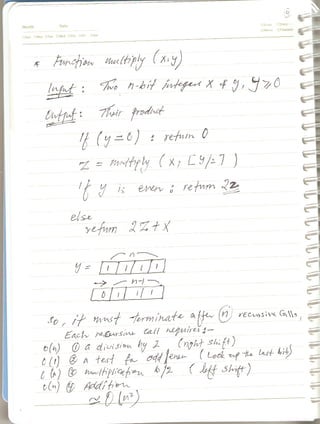 * Function multiply (x, y)
Input : Two n-bit integers X & y, y ⩾ 0
Output : Their product
If (y = 0) : return 0
Z = multiply (x, ⌊y/2⌋)
If y is even : return 2z
else
return 2Z + X
n
y = 1 1 1 1
n-1
0 1 1 1
So, it must terminate after n recursive Calls,
Each recursive call requires :-
O(n) ① a division by 2 (right shift)
O(1) ② a test for odd/even (Look up the last bit)
O(n) ③ multiplication by 2 (left shift)
O(n) ④ Addition
≃ O(n²)